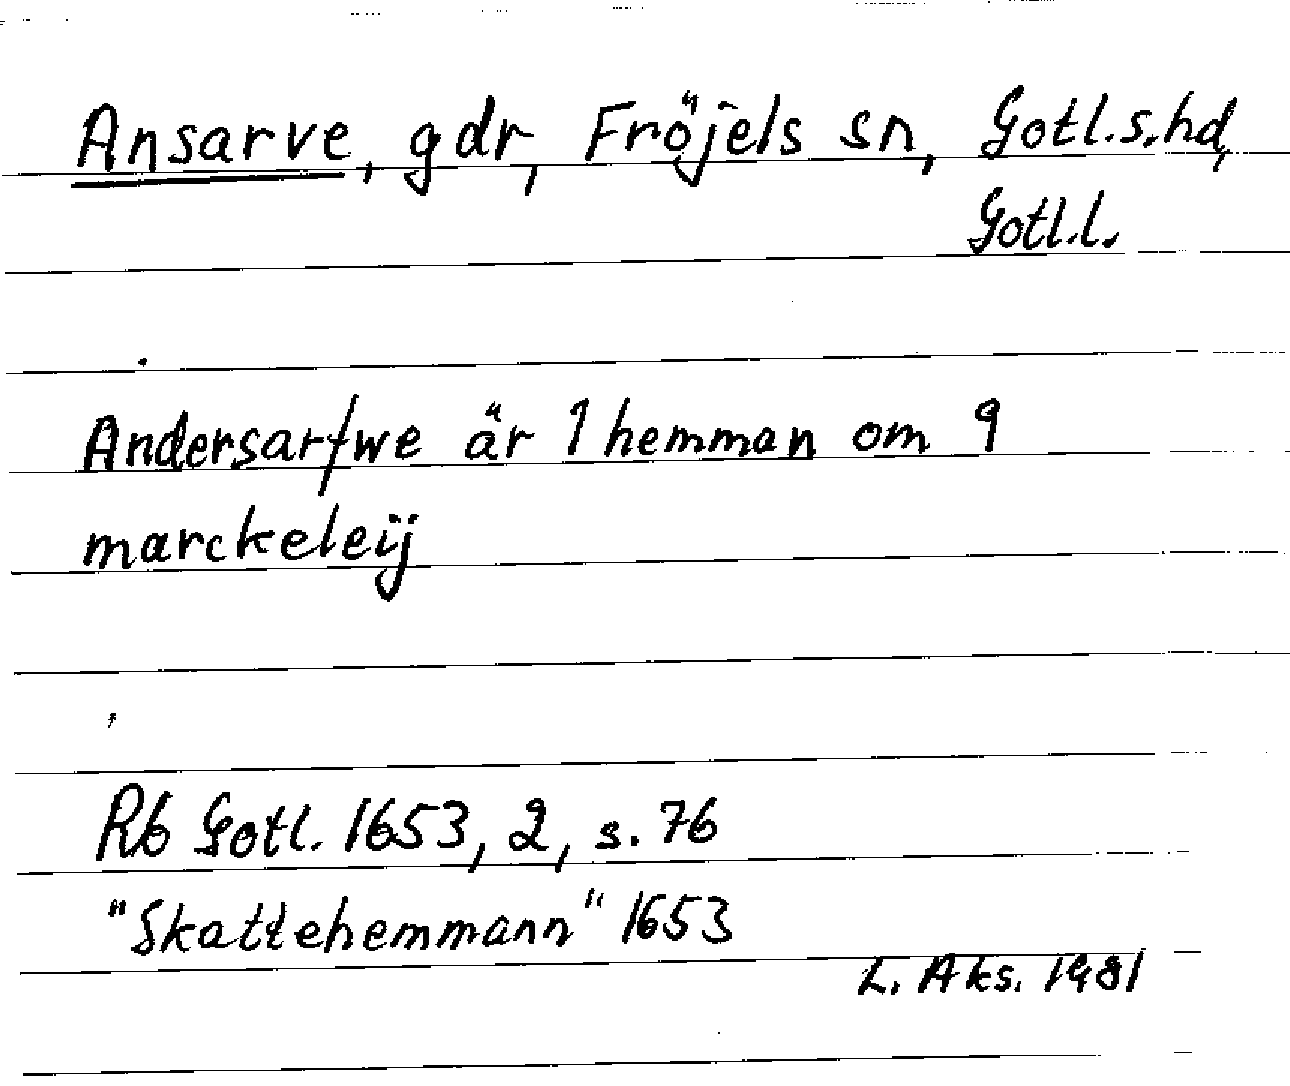 Ansarve, gdr, Fröjels sn, Gotl.s.hd,
Gotl.l.
Andersarfwe är 1 hemman om 9
marckeleij
Rb Gotl. 1653, 2, s. 76
"Skattehemmann" 1653
L. Aks. 1981